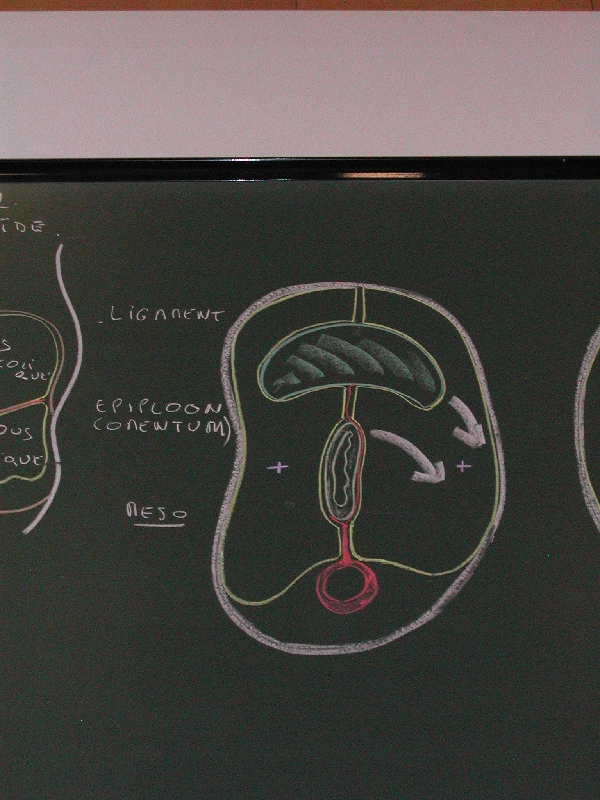 IDE.
.LIGAMENT
S
COLI
QUE
EPIPLOON
(OMENTUM)
OUS
IQUE
MESO
+
+